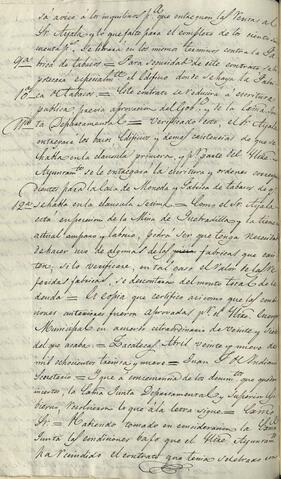 sá aviso á los inquilinos pa. que entreguen las rentas al
Sr. Ayala, y lo que falte para el completo de los ciento
sesenta ps. se librara en los mismos terminos contra la Fa
brica de tabacos = Para seguridad de este contrato se hi
9a poteca especialmte. el Edificio donde se halla la Fabri
10a ca de tabacos = Este contrato se reducira á escritura
publica previa aprovacion del Gobno. y de la Exma. Jun
11a ta Departamental = Verificado esto, el Sr. Ayala
entregara las fincas Edificios y demas existencias de que se
habla en la clausula primera, y pr. parte del Iltre.
Ayuntamto. se le entregara la escritura y ordenes correspon
dientes para la Casa de Moneda y Fabrica de tabacos de qe.
12a se habla en la clausula setima = Como el Sr. Ayala
esta en posesion de la Mina de Quebradilla y la tiene en
actual amparo y laborio, podrá ser que tenga necesidad
de hacer uso de algunas de las fabricas que exis
ten; si lo verificare, en tal caso el valor de las re
feridas fabricas, se descontará del monto total de la
deuda = Es copia que certifico asi como que las condi
ciones anteriores fueron aprovadas pr. el Iltre. Cuerpo
Municipal en acuerdo extraordinario de veinte y siete
del que acaba = Zacatecas Abril veinte y nueve de
mil ochocientos treinta y nueve = Juan
Secretario = Y que á consecuencia de los documtos. que quedan
insertos, la Exma. Junta Departamental y Superior Go
bierno, resolvieron lo que á la letra sigue = Exmo.
Sr. = Habiendo tomado en consideracion la Exma.
Junta las condiciones bajo que el Iltre. Ayuntam
ha rescindido el contrato que tenia celebrado con